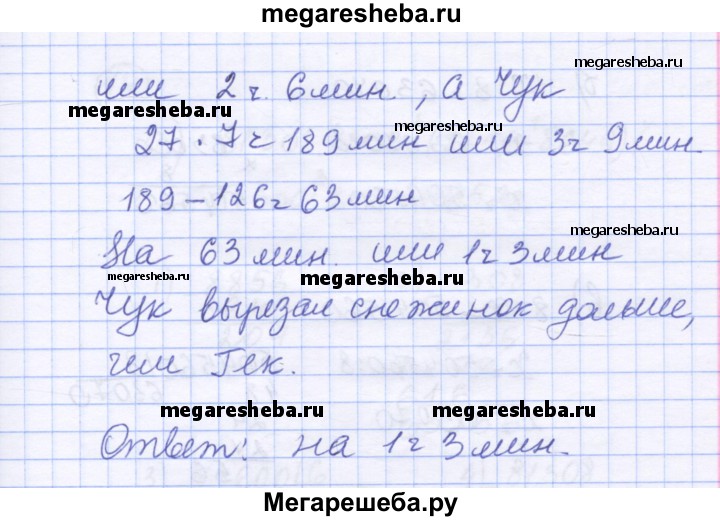 megaresheba.ru
или 2 ч. 6 мин, а Чук
megaresheba.ru
megaresheba.ru
megaresheba.ru
27 · 7 = 189 мин или 3 ч 9 мин.
189 – 126 = 63 мин
На 63 мин. или 1 ч 3 мин
megaresheba.ru
megaresheba.ru
Чук вырезал снежинок дольше,
чем Гек.
megaresheba.ru
megaresheba.ru
Ответ: на 1 ч 3 мин.
Мегарешеба.ру